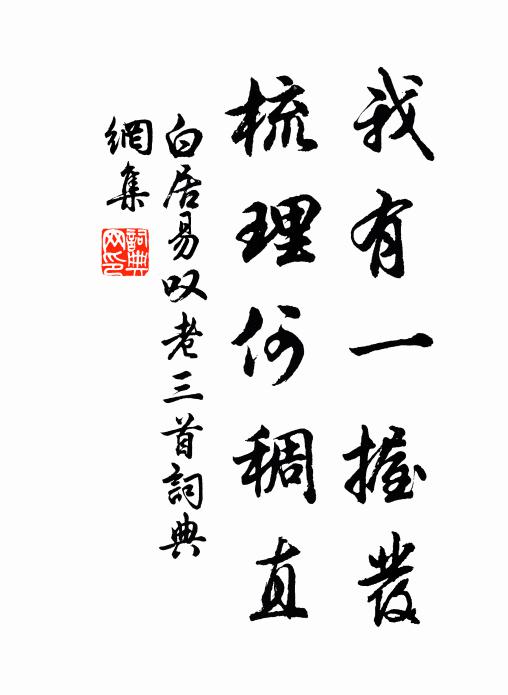 我有一握發
梳理何稠直
白居易叹老三首詞典
網集
詞典網印